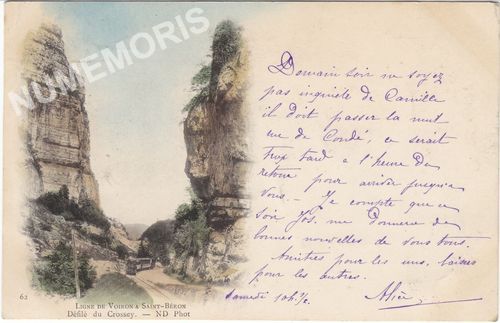 NUMEMORIS
Demain soir ne soyez
pas inquiète de Camille
il doit passer la nuit
rue de Condé, ce serait
trop tard à l'heure du
retour pour arriver jusqu'à
vous. — Je compte que ce
soir Jos. me donnera de
bonnes nouvelles de vous tous.
Amitiés pour les uns, baisers
pour les autres.
Samedi 10h ½
62
LIGNE DE VOIRON A SAINT-BÉRON
Défilé du Crossey. — ND Phot